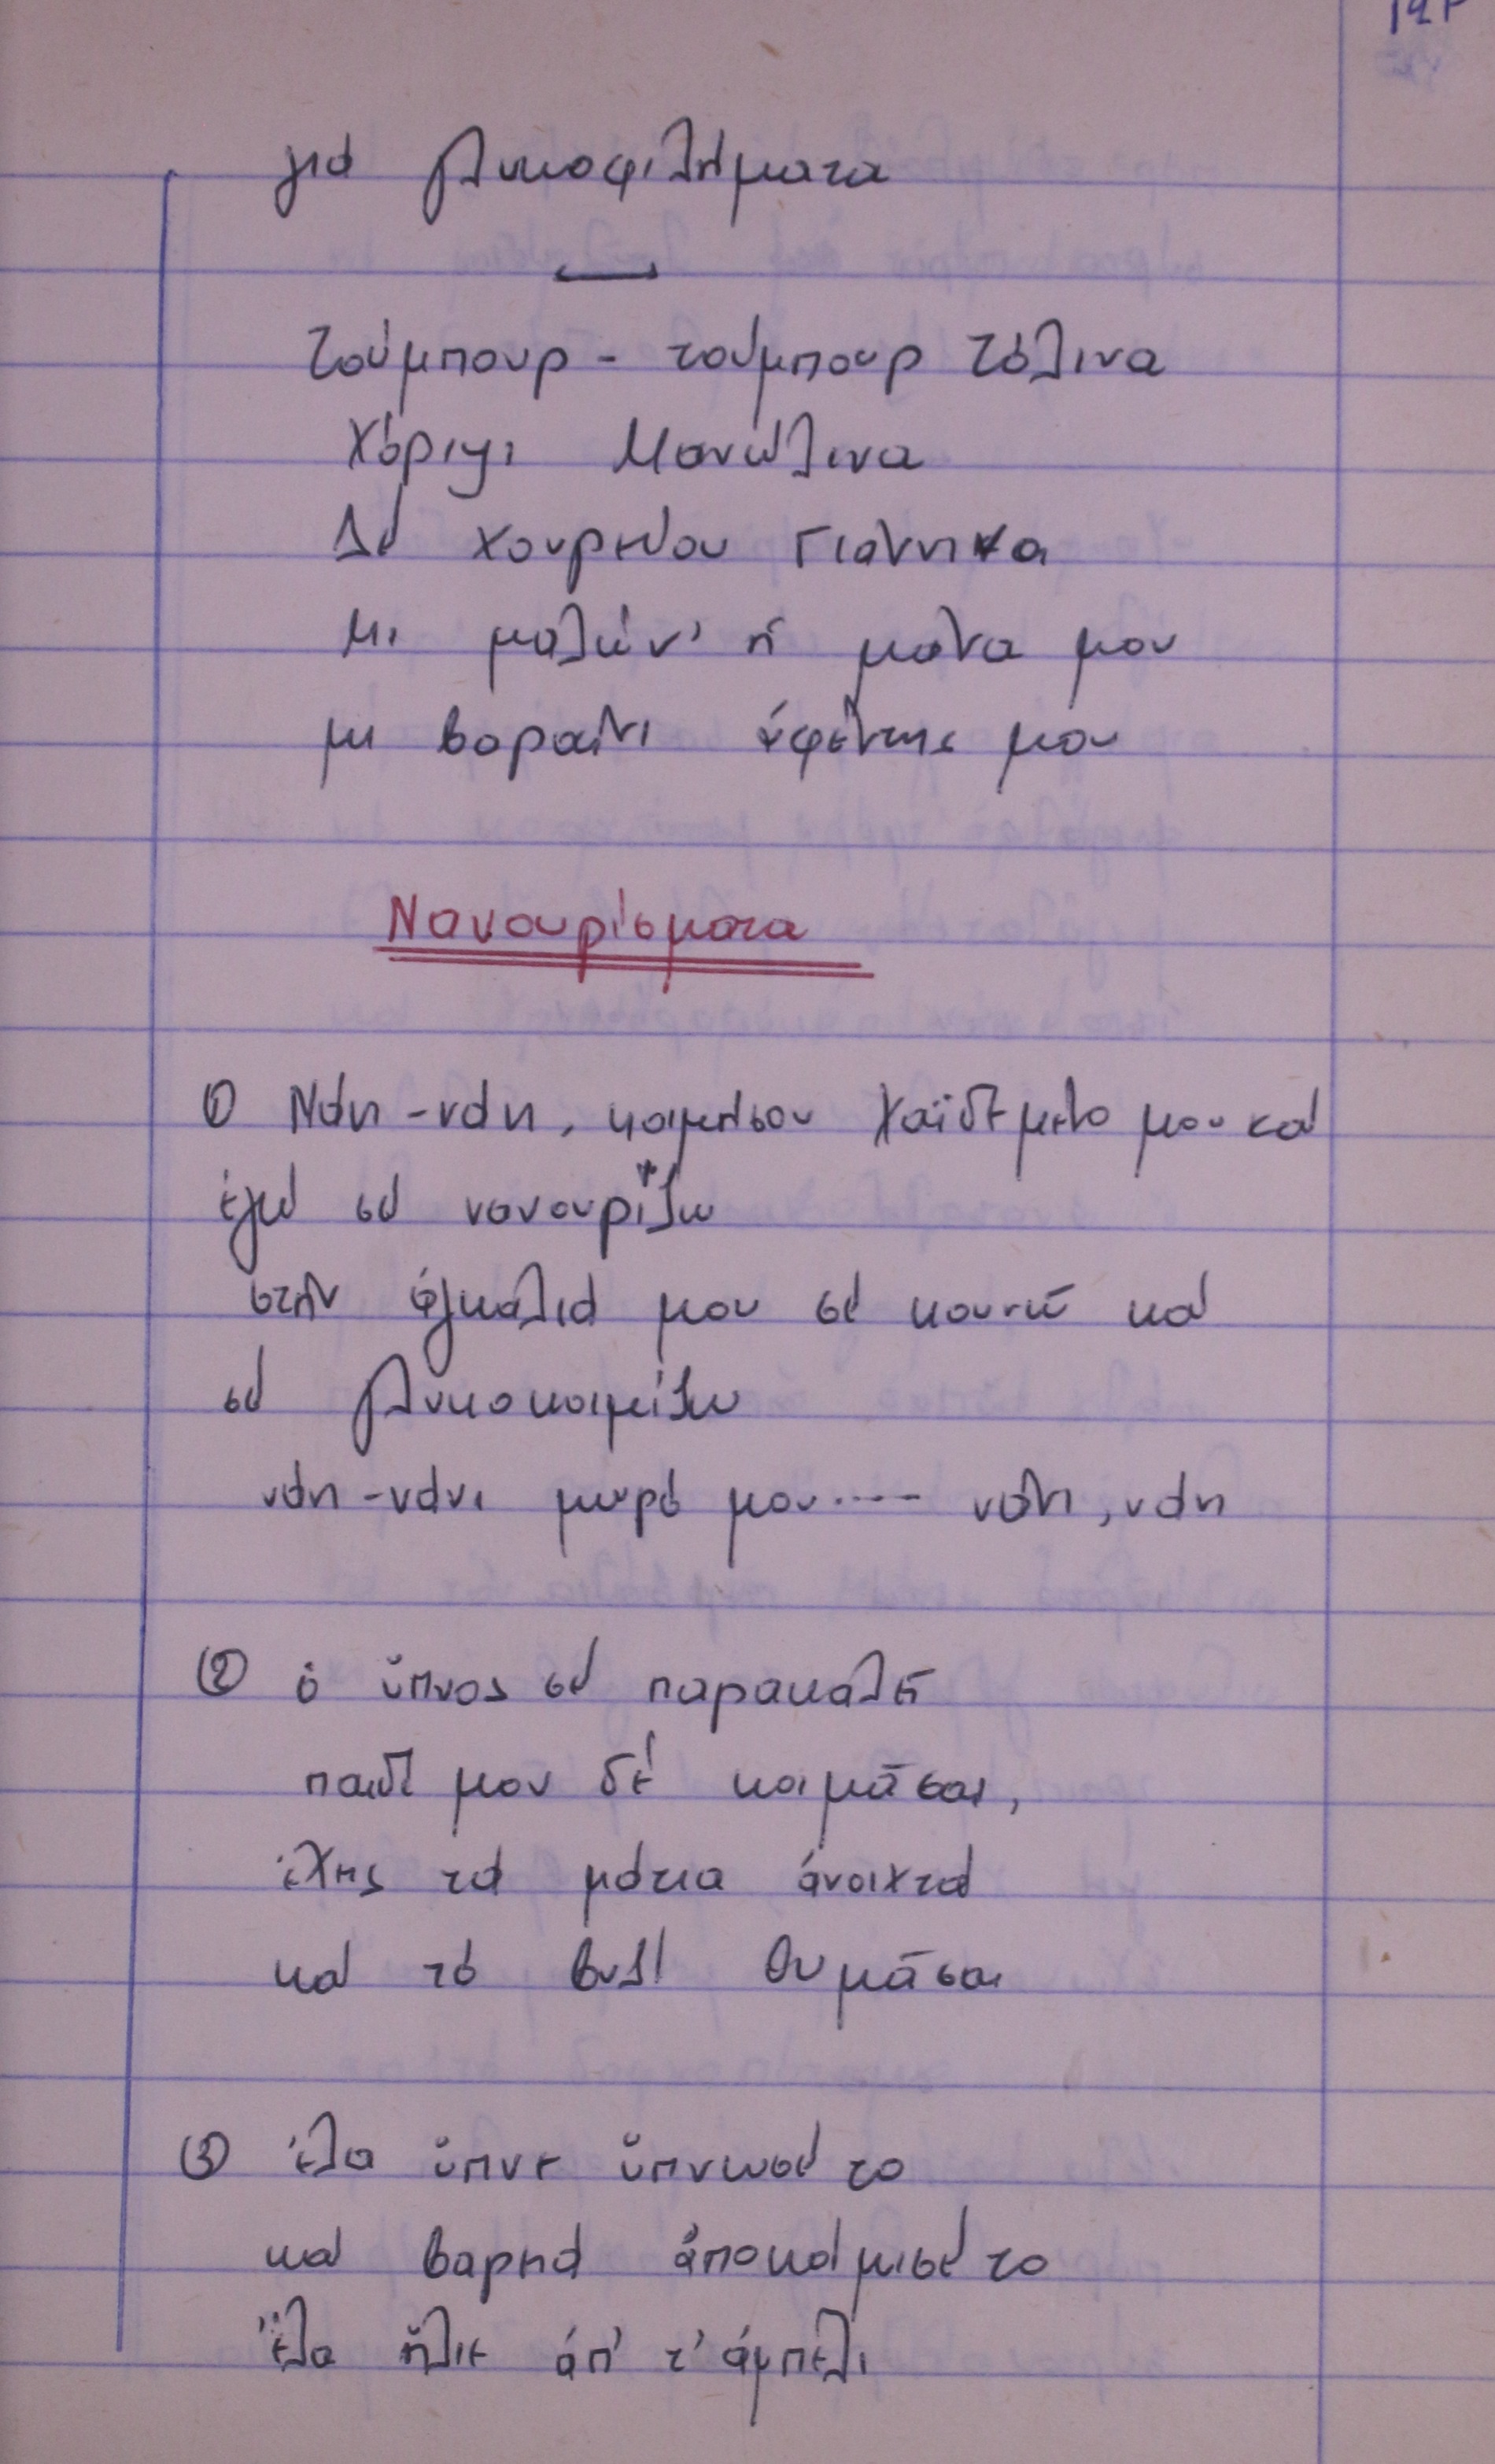 γιά γλυκοφιλήματα
Τούμπουρ - τούμπουρ τόλινα
Χόριψι Μανώλινα
Δέ χουρεύου Γιάννινα
Μι μαλών' ἡ μάνα μου
μι βαραίνι ἀφέντης μου
Νανουρίσματα
① Νάνι - νάνι, κοιμήσου χαϊδεμένο μου και
ἐγώ σέ νανουρίζω
στήν ἀγκαλιά μου σέ κουνῶ καί
σέ γλυκοκοιμίζω
νάνι - νάνι μωρό μου.... νάνι, νάνι
② ὁ ὕπνος σέ παρακαλεῖ
παιδί μου δέ κοιμᾶσαι,
ἔχεις τά μάτια ἀνοιχτά
καί τό βυζί θυμᾶσαι
③ ἔλα ὕπνε ὕπνωσέ το
καί βαρειά ἀποκοίμισέ το
ἔλα ἥλιε ἀπ' τ' ἀμπέλι